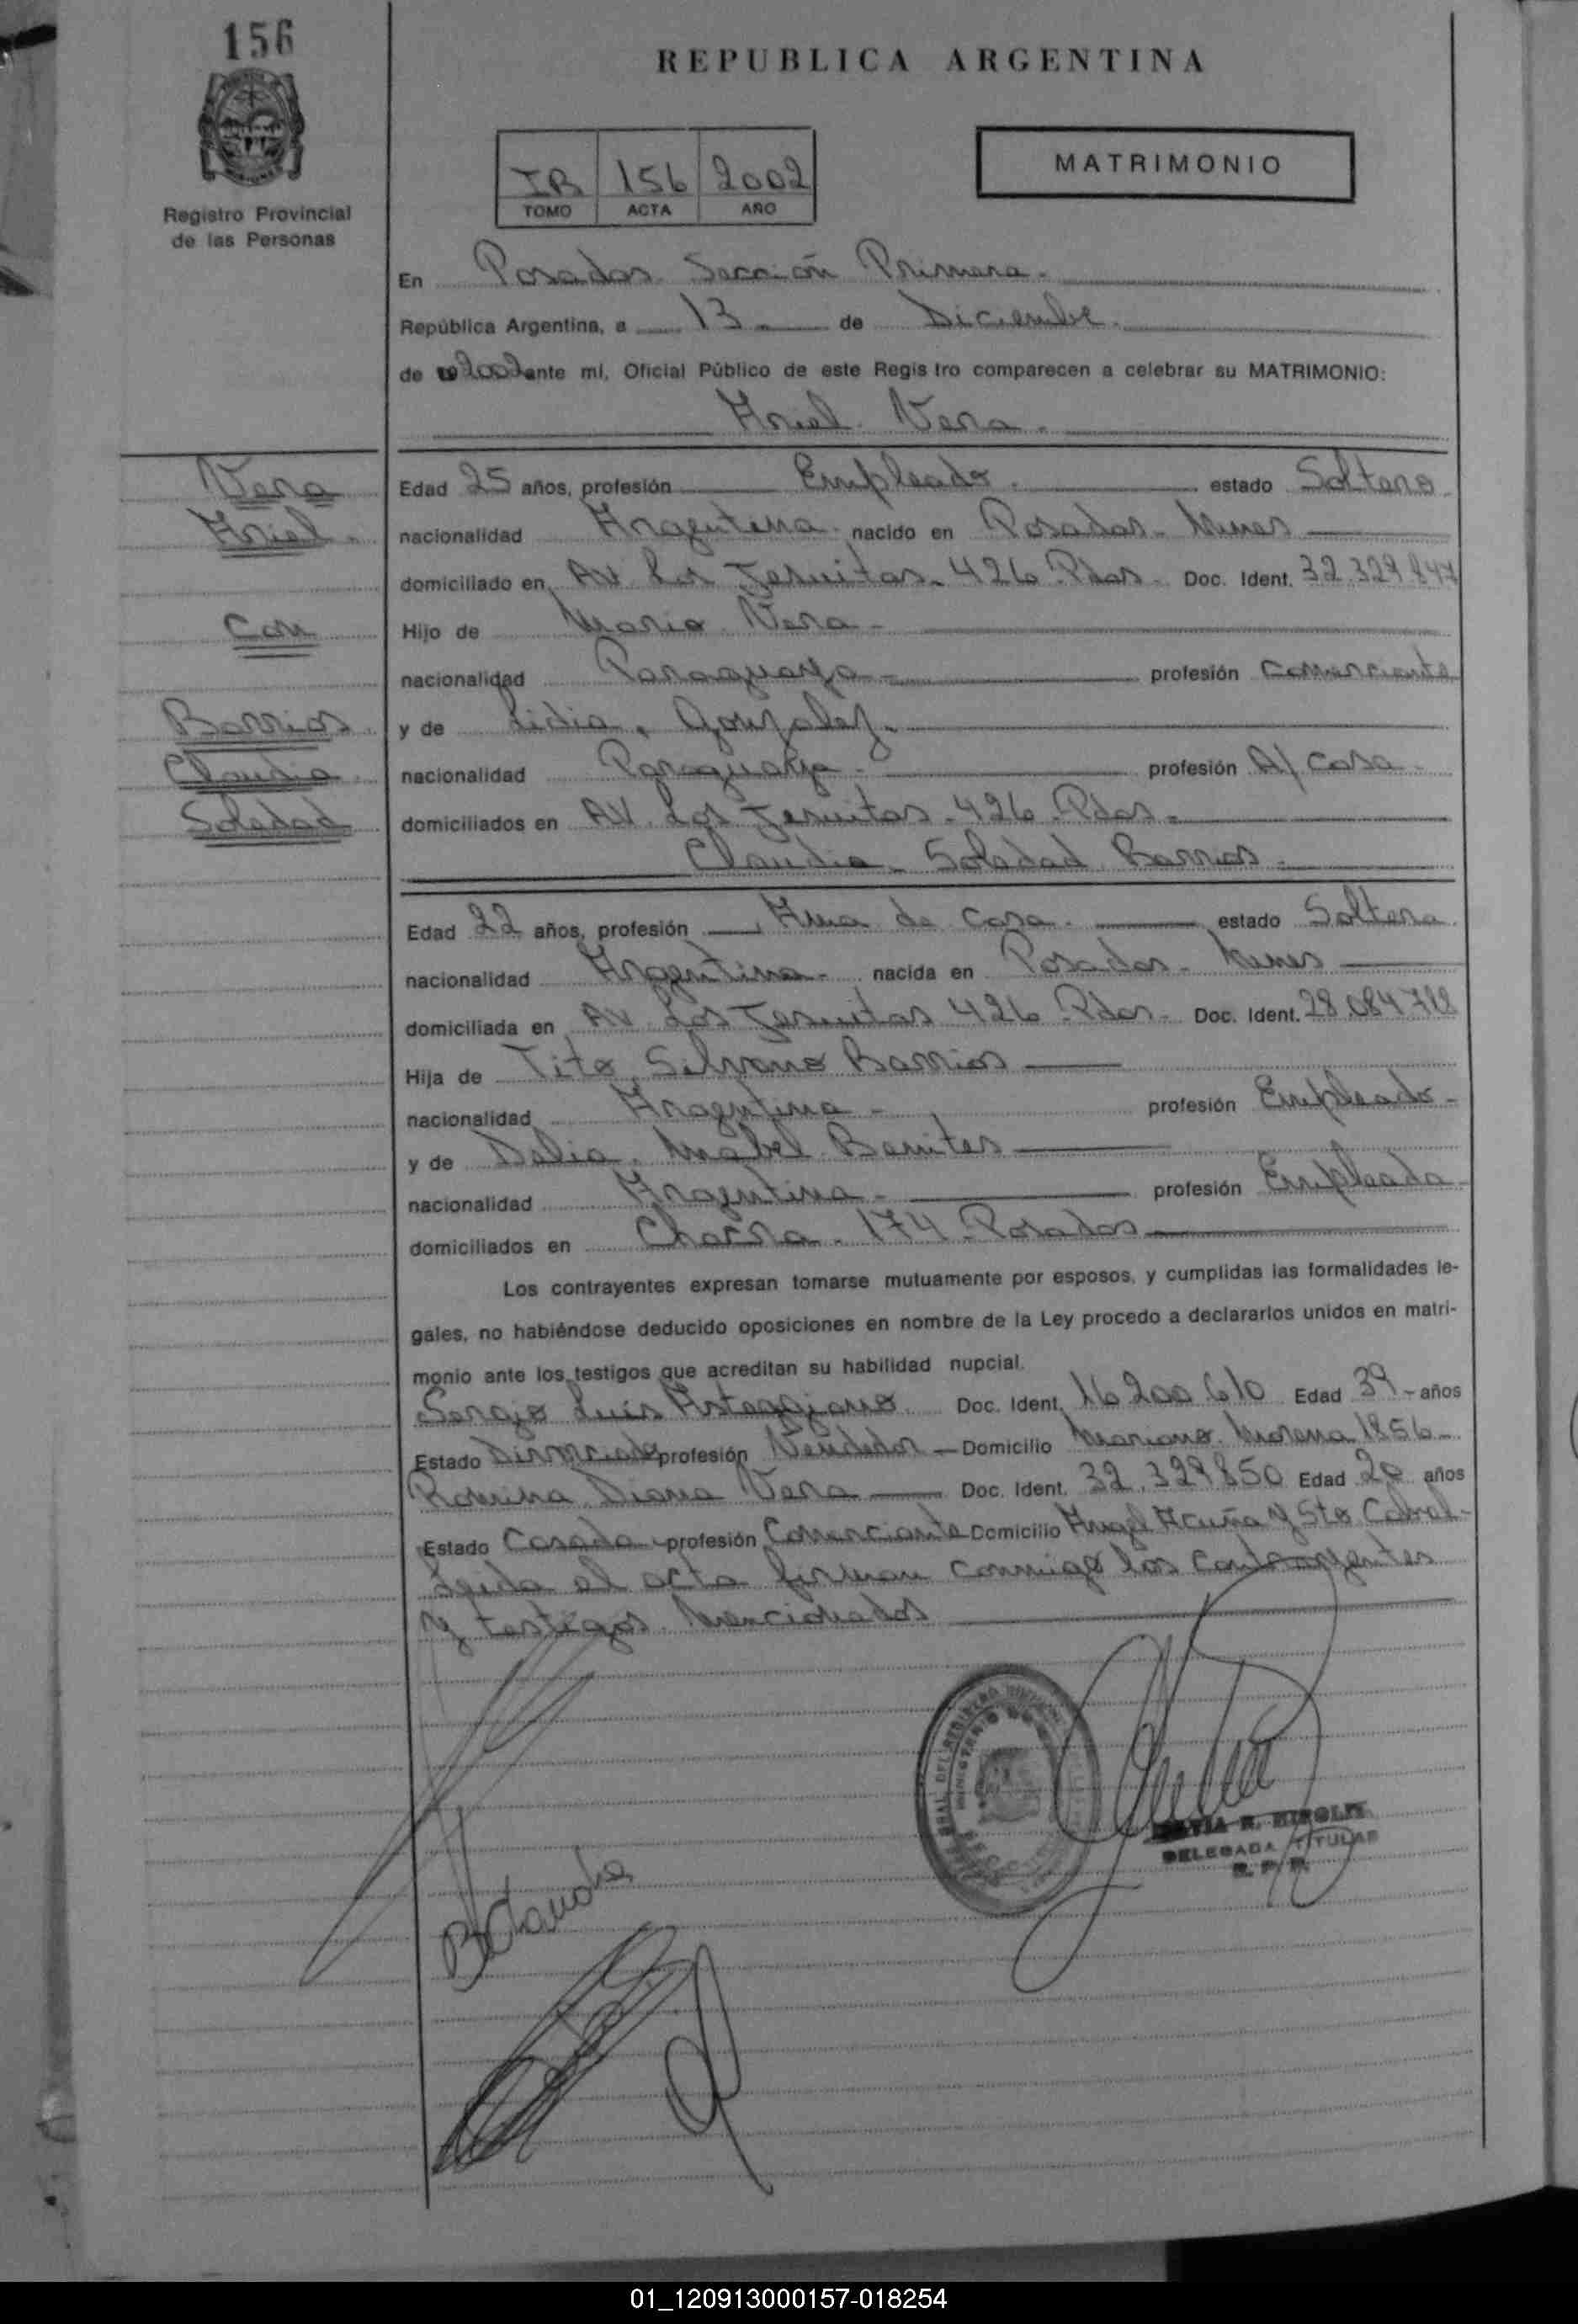 156
REPUBLICA ARGENTINA
MATRIMONIO
156 2002
TOMO ACTA AÑO
Registro Provincial
de las Personas
En Posadas Sección Primera.
República Argentina, a 13 de Diciembre
de 2002 ante mí, Oficial Público de este Registro comparecen a celebrar su MATRIMONIO:
Ariel Vera
Vera
Ariel
Con
Barrios
Claudia
Soledad
Edad 25 años, profesión Empleado. estado Soltero
nacionalidad Argentina nacido en Posadas - Mnes
domiciliado en Av. Los Jesuitas - 426 - Pdas - Doc. Ident. 32.329.847
Hijo de Mario Vera -
nacionalidad Paraguaya - profesión Comerciante
y de Lidia Gonzalez.
nacionalidad Paraguaya - profesión A/ casa
domiciliados en AV. Los Jesuitas - 426 - Pdas -
Claudia Soledad Barrios -
Edad 22 años, profesión Ama de casa estado Soltera
nacionalidad Argentina - nacida en Posadas - Mnes
domiciliada en AV. Los Jesuitas 426 - Pdas - Doc. Ident.
Hija de Tito Silvano Barrios
nacionalidad Argentina - profesión Empleado -
y de Delia Mabel Benites
nacionalidad Argentina - profesión Empleada
domiciliados en Chacra 174 - Posadas
Los contrayentes expresan tomarse mutuamente por esposos, y cumplidas las formalidades le-
gales, no habiéndose deducido oposiciones en nombre de la Ley procedo a declararlos unidos en matri-
monio ante los testigos que acreditan su habilidad nupcial.
Sergio Luis Doc. Ident. 16.200.610 Edad 39 - años
Estado Divorciado profesión Vendedor - Domicilio Mariano Moreno 1856 -
Romina Diana Vera Doc. Ident. 32.329.850 Edad 20 años
Estado Casada profesión Comerciante Domicilio Angel Acuña y Sto Cabral -
Leida el acta firman conmigo los contrayentes
y testigos mencionados
DELEGADA TITULAR
R. P. P.
01_120913000157-018254